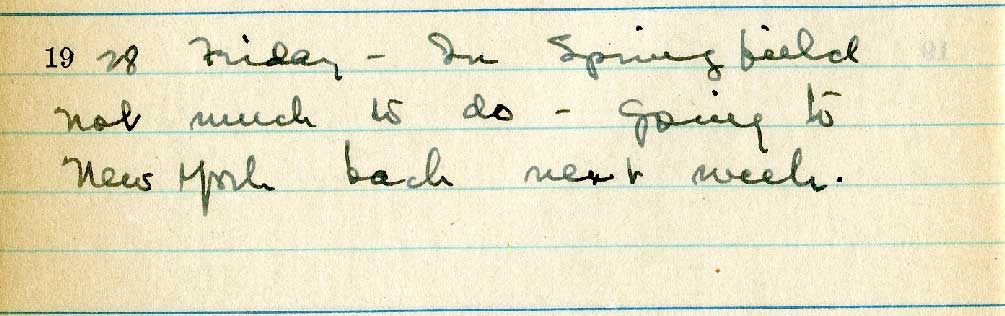 1928 Friday - In Springfield
not much to do - going to
New York back next week.